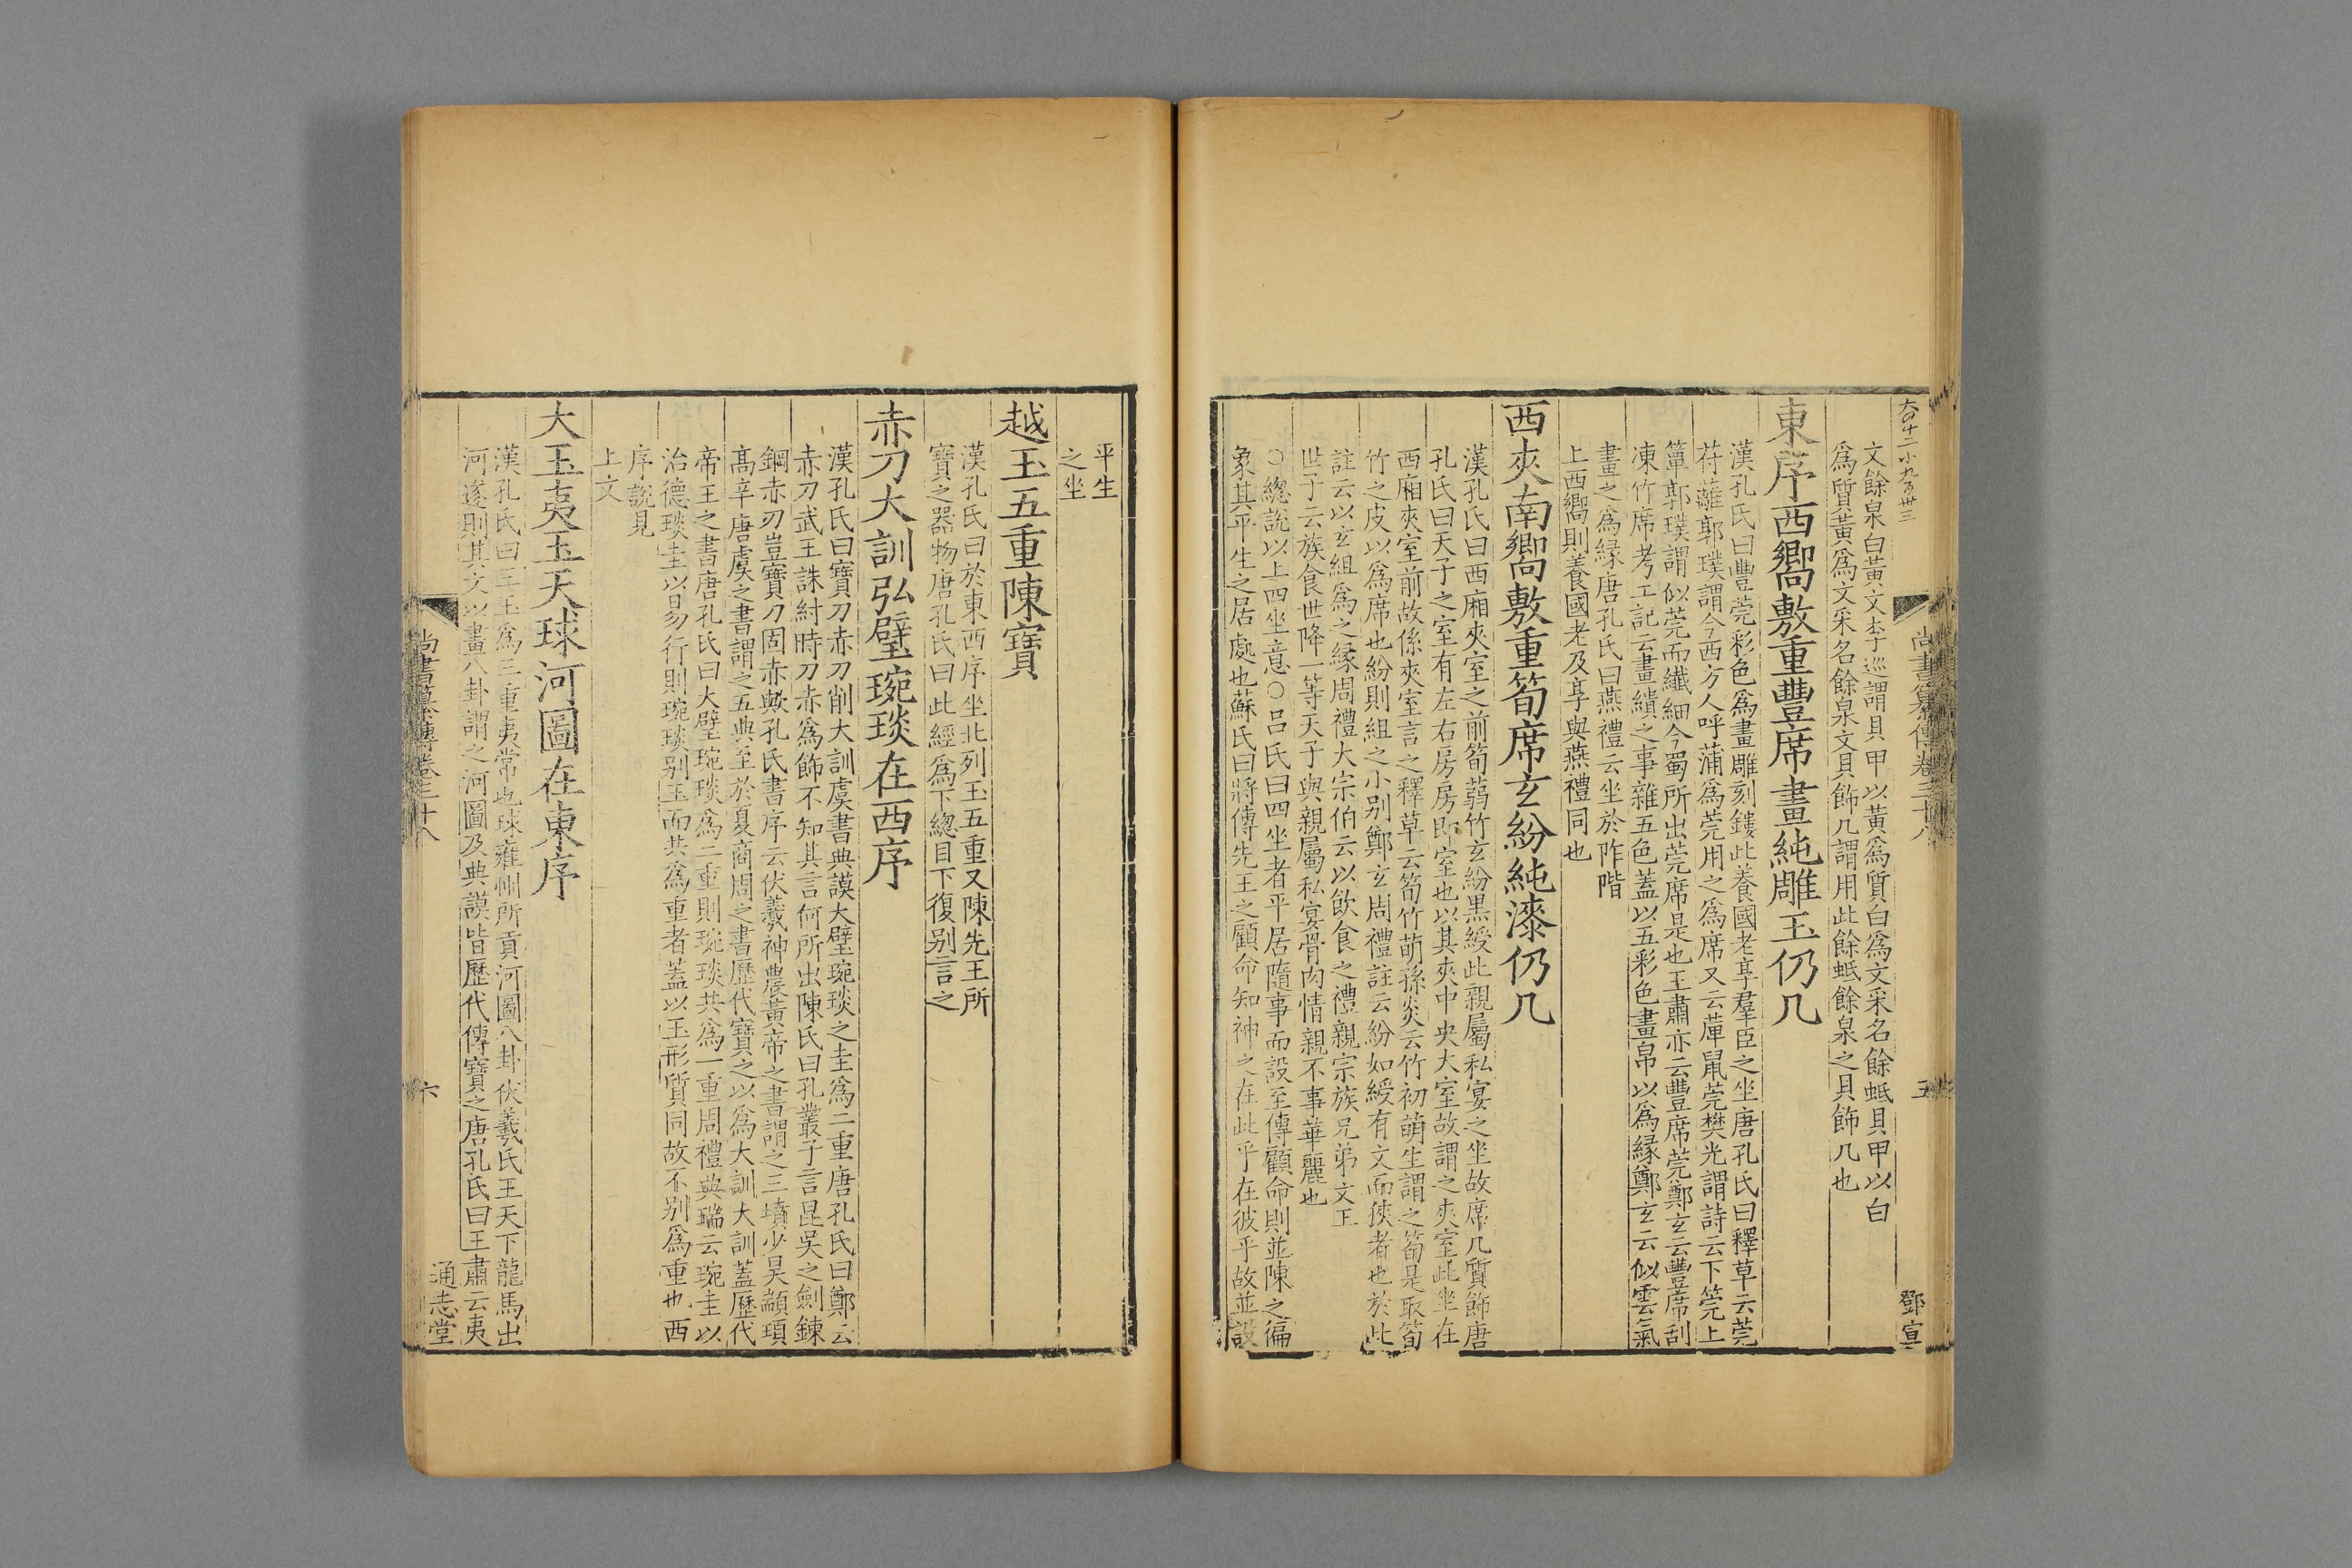 大四十二小九百卅三
尚書纂傳卷三十八
五
鄧宣
文餘泉白黃文李巡謂貝甲以黃爲質白爲文采名餘蚳貝甲以白
爲質黃爲文采名餘泉文貝飾几謂用此餘蚳餘泉之貝飾几也
東序西嚮敷重豐席畫純雕玉仍几
漢孔氏曰豐莞彩色爲畫雕刻鏤此養國老享羣臣之坐唐孔氏曰釋草云莞
苻蘺郭璞謂今西方人呼蒲爲莞用之爲席又云䕠鼠莞樊光謂詩云下莞上
簟郭璞謂似莞而纖細今蜀所出莞席是也王肅亦云豐席莞鄭玄云豐席刮
凍竹席考工記云畫繢之事雜五色蓋以五彩色畫帛以爲緣鄭玄云似雲氣
畫之爲緣唐孔氏曰燕禮云坐於阼階
上西嚮則養國老及享與燕禮同也
西夾南嚮敷重筍席玄紛純漆仍几
漢孔氏曰西廂夾室之前筍蒻竹玄紛黑綬此親屬私宴之坐故席几質飾唐
孔氏曰天子之室有左右房房即室也以其夾中央大室故謂之夾室此坐在
西廂夾室前故係夾室言之釋草云筍竹萌孫炎云竹初萌生謂之筍是取筍
竹之皮以爲席也紛則組之小别鄭玄周禮註云紛如綬有文而狹者也於此
註云以玄組爲之緣周禮大宗伯云以飲食之禮親宗族兄弟文王
世子云族食世降一等天子與親屬私宴骨肉情親不事華麗也
○總說以上四坐意○吕氏曰四坐者平居隨事而設至傳顧命則並陳之徧
象其平生之居處也蘇氏曰將傳先王之顧命知神之在此乎在彼乎故並設
平生
之坐
越玉五重陳寶
漢孔氏曰於東西序坐北列玉五重又陳先王所
寶之器物唐孔氏曰此經爲下總目下復别言之
赤刀大訓弘璧琬琰在西序
漢孔氏曰寶刀赤刀削大訓虞書典謨大璧琬琰之圭爲二重唐孔氏曰鄭云
赤刀武王誅紂時刀赤爲飾不知其言何所出陳氏曰孔叢子言昆吳之劍鍊
鋼赤刃豈寶刀固赤歟孔氏書序云伏羲神農黃帝之書謂之三墳少昊顓頊
高辛唐虞之書謂之五典至於夏商周之書歷代寶之以爲大訓大訓蓋歷代
帝王之書唐孔氏曰大璧琬琰爲二重則琬琰共爲一重周禮典瑞云琬圭以
治德琰圭以易行則琬琰别玉而共爲重者蓋以玉形質同故不别爲重也西
序說見
上文
大玉夷玉天球河圖在東序
漢孔氏曰三玉爲三重夷常也球雍州所貢河圖八卦伏羲氏王天下龍馬出
河遂則其文以畫八卦謂之河圖及典謨皆歷代傳寶之唐孔氏曰王肅云夷
尚書纂傳卷三十八
六
通志堂